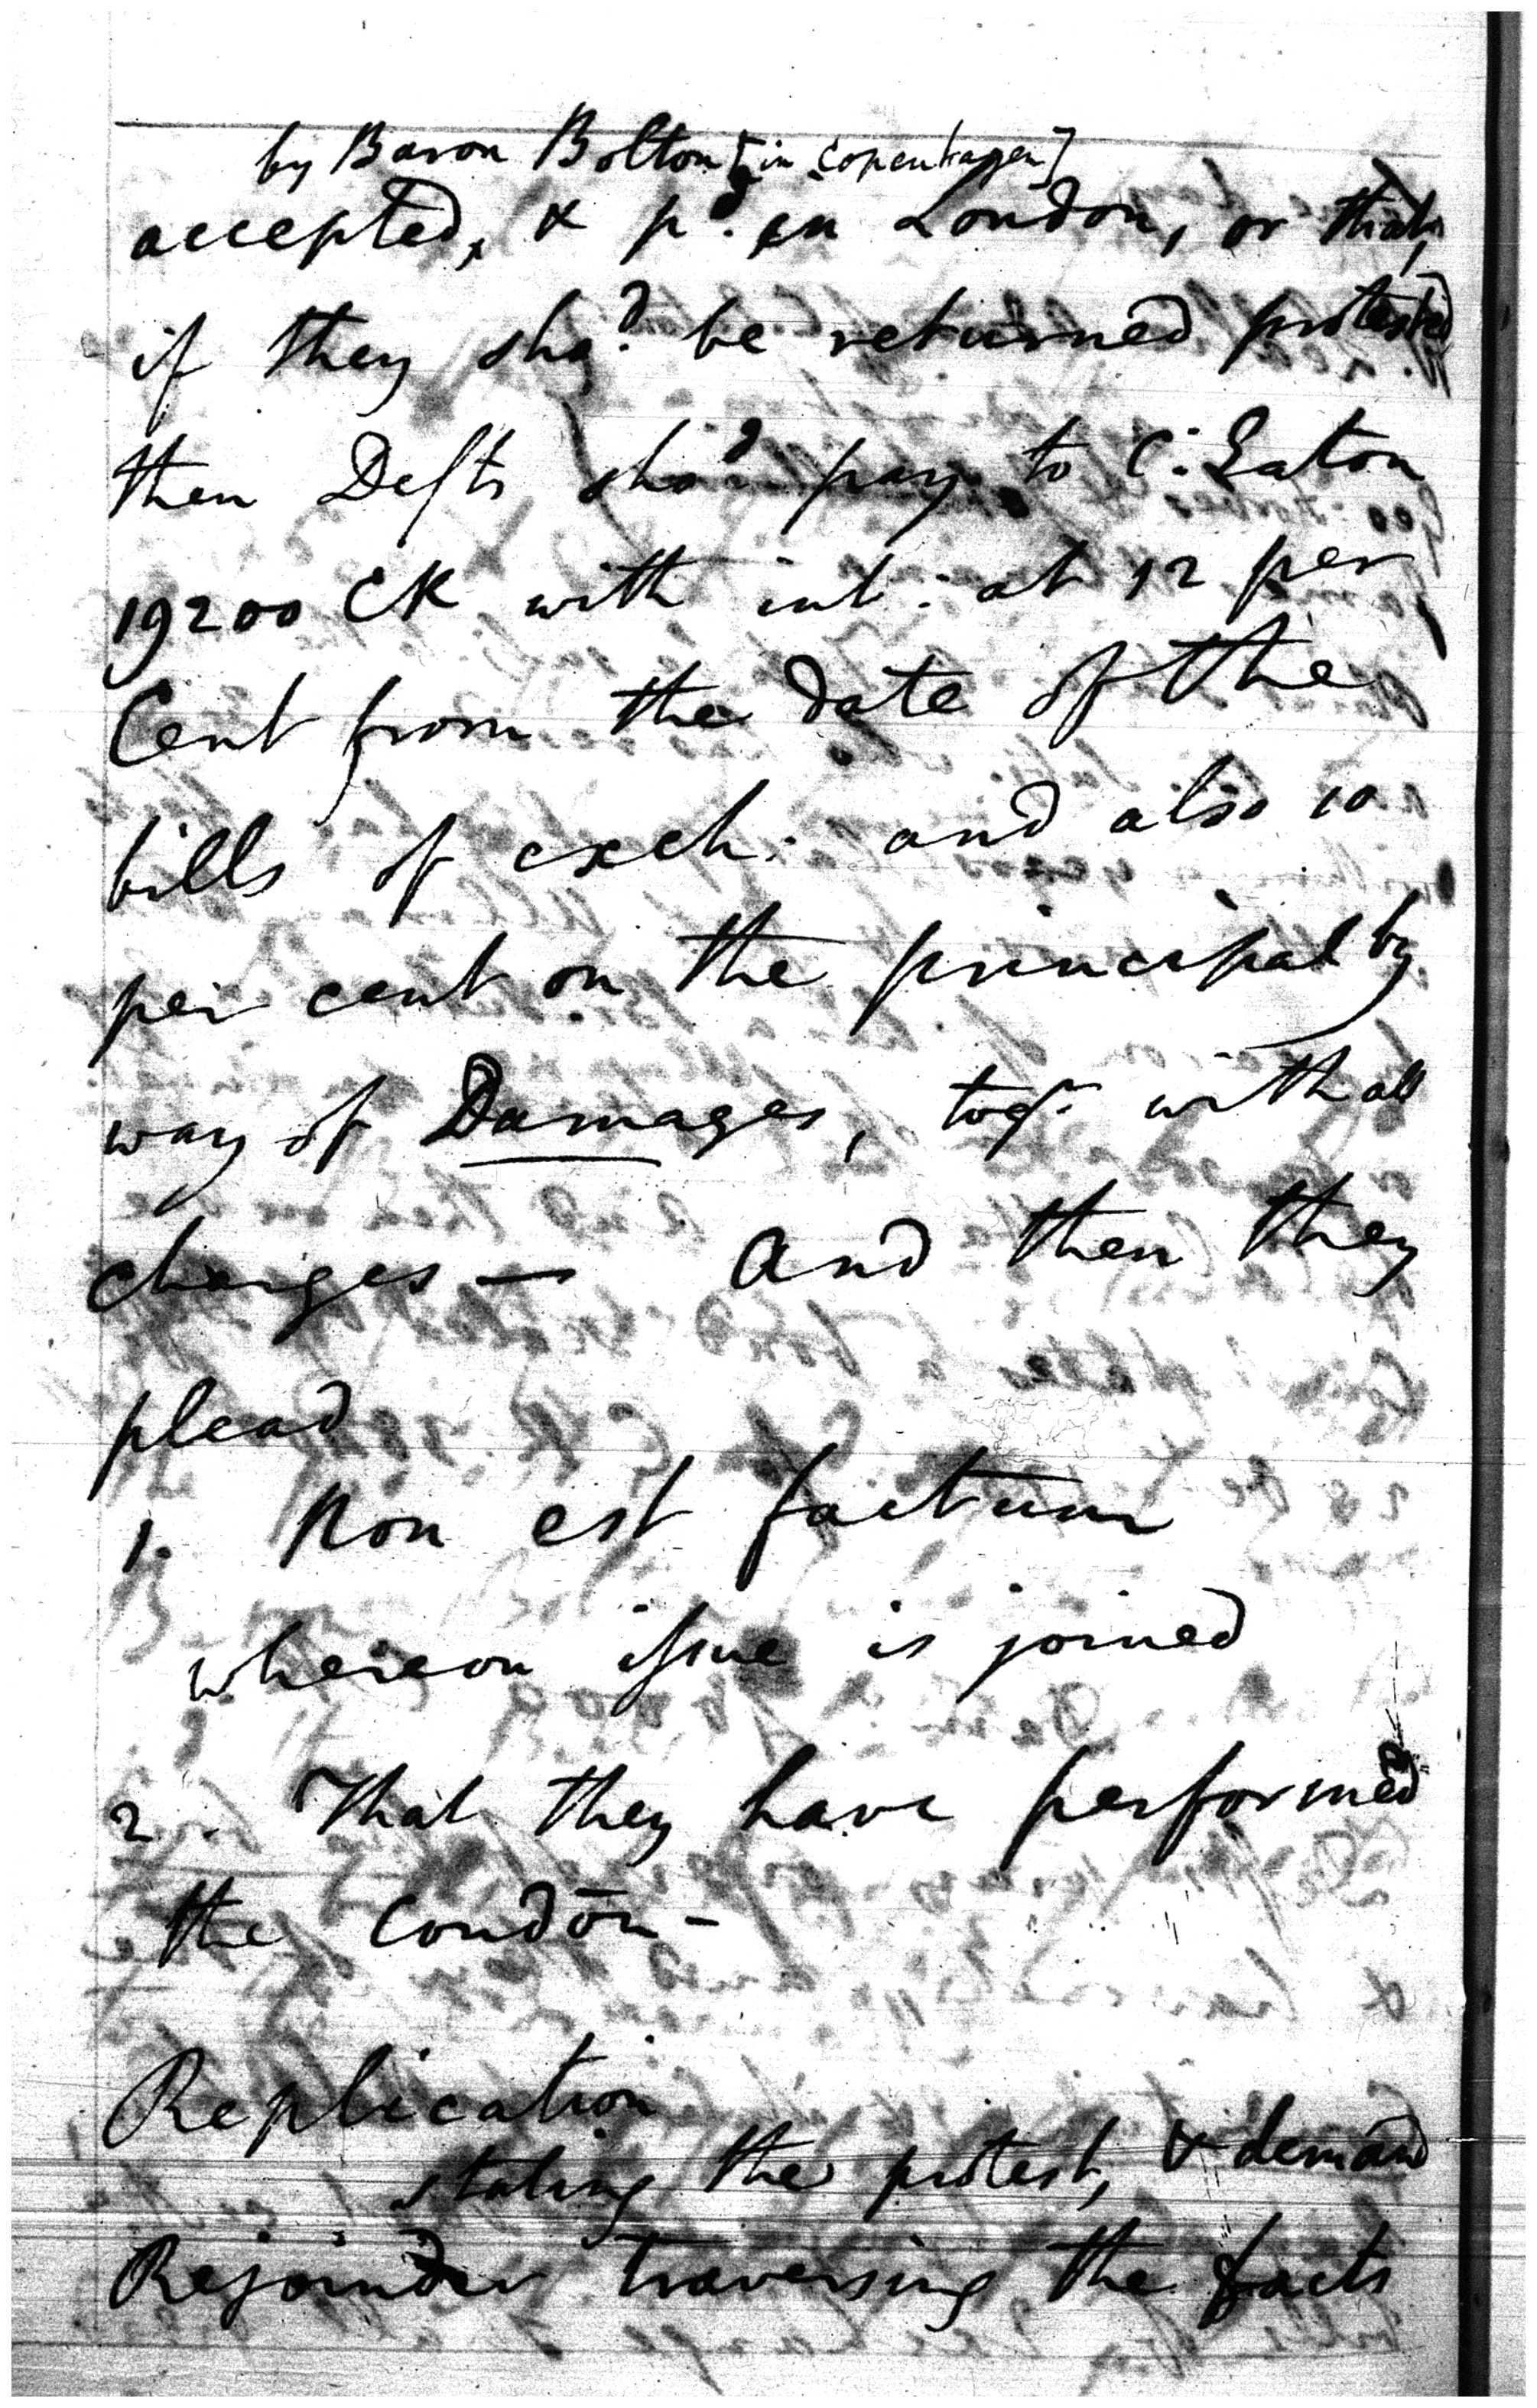 by Baron Bolton [in Copenhagen]
accepted, & pd. in London, or that,
if they shod. be returned protested
then Defts shod pay to C: Eaton
19200 CK with int: at 12 per
Cent from the date of the
bills of exch: and also 10
per cent on the principal by
way of Damages, togr. with all
charges — And then they
plead
1. Non est factum
whereon issue is joined
2. That they have performed
the Condōn -
Replication
stating the protest, & demand
Rejoinder traversing the facts